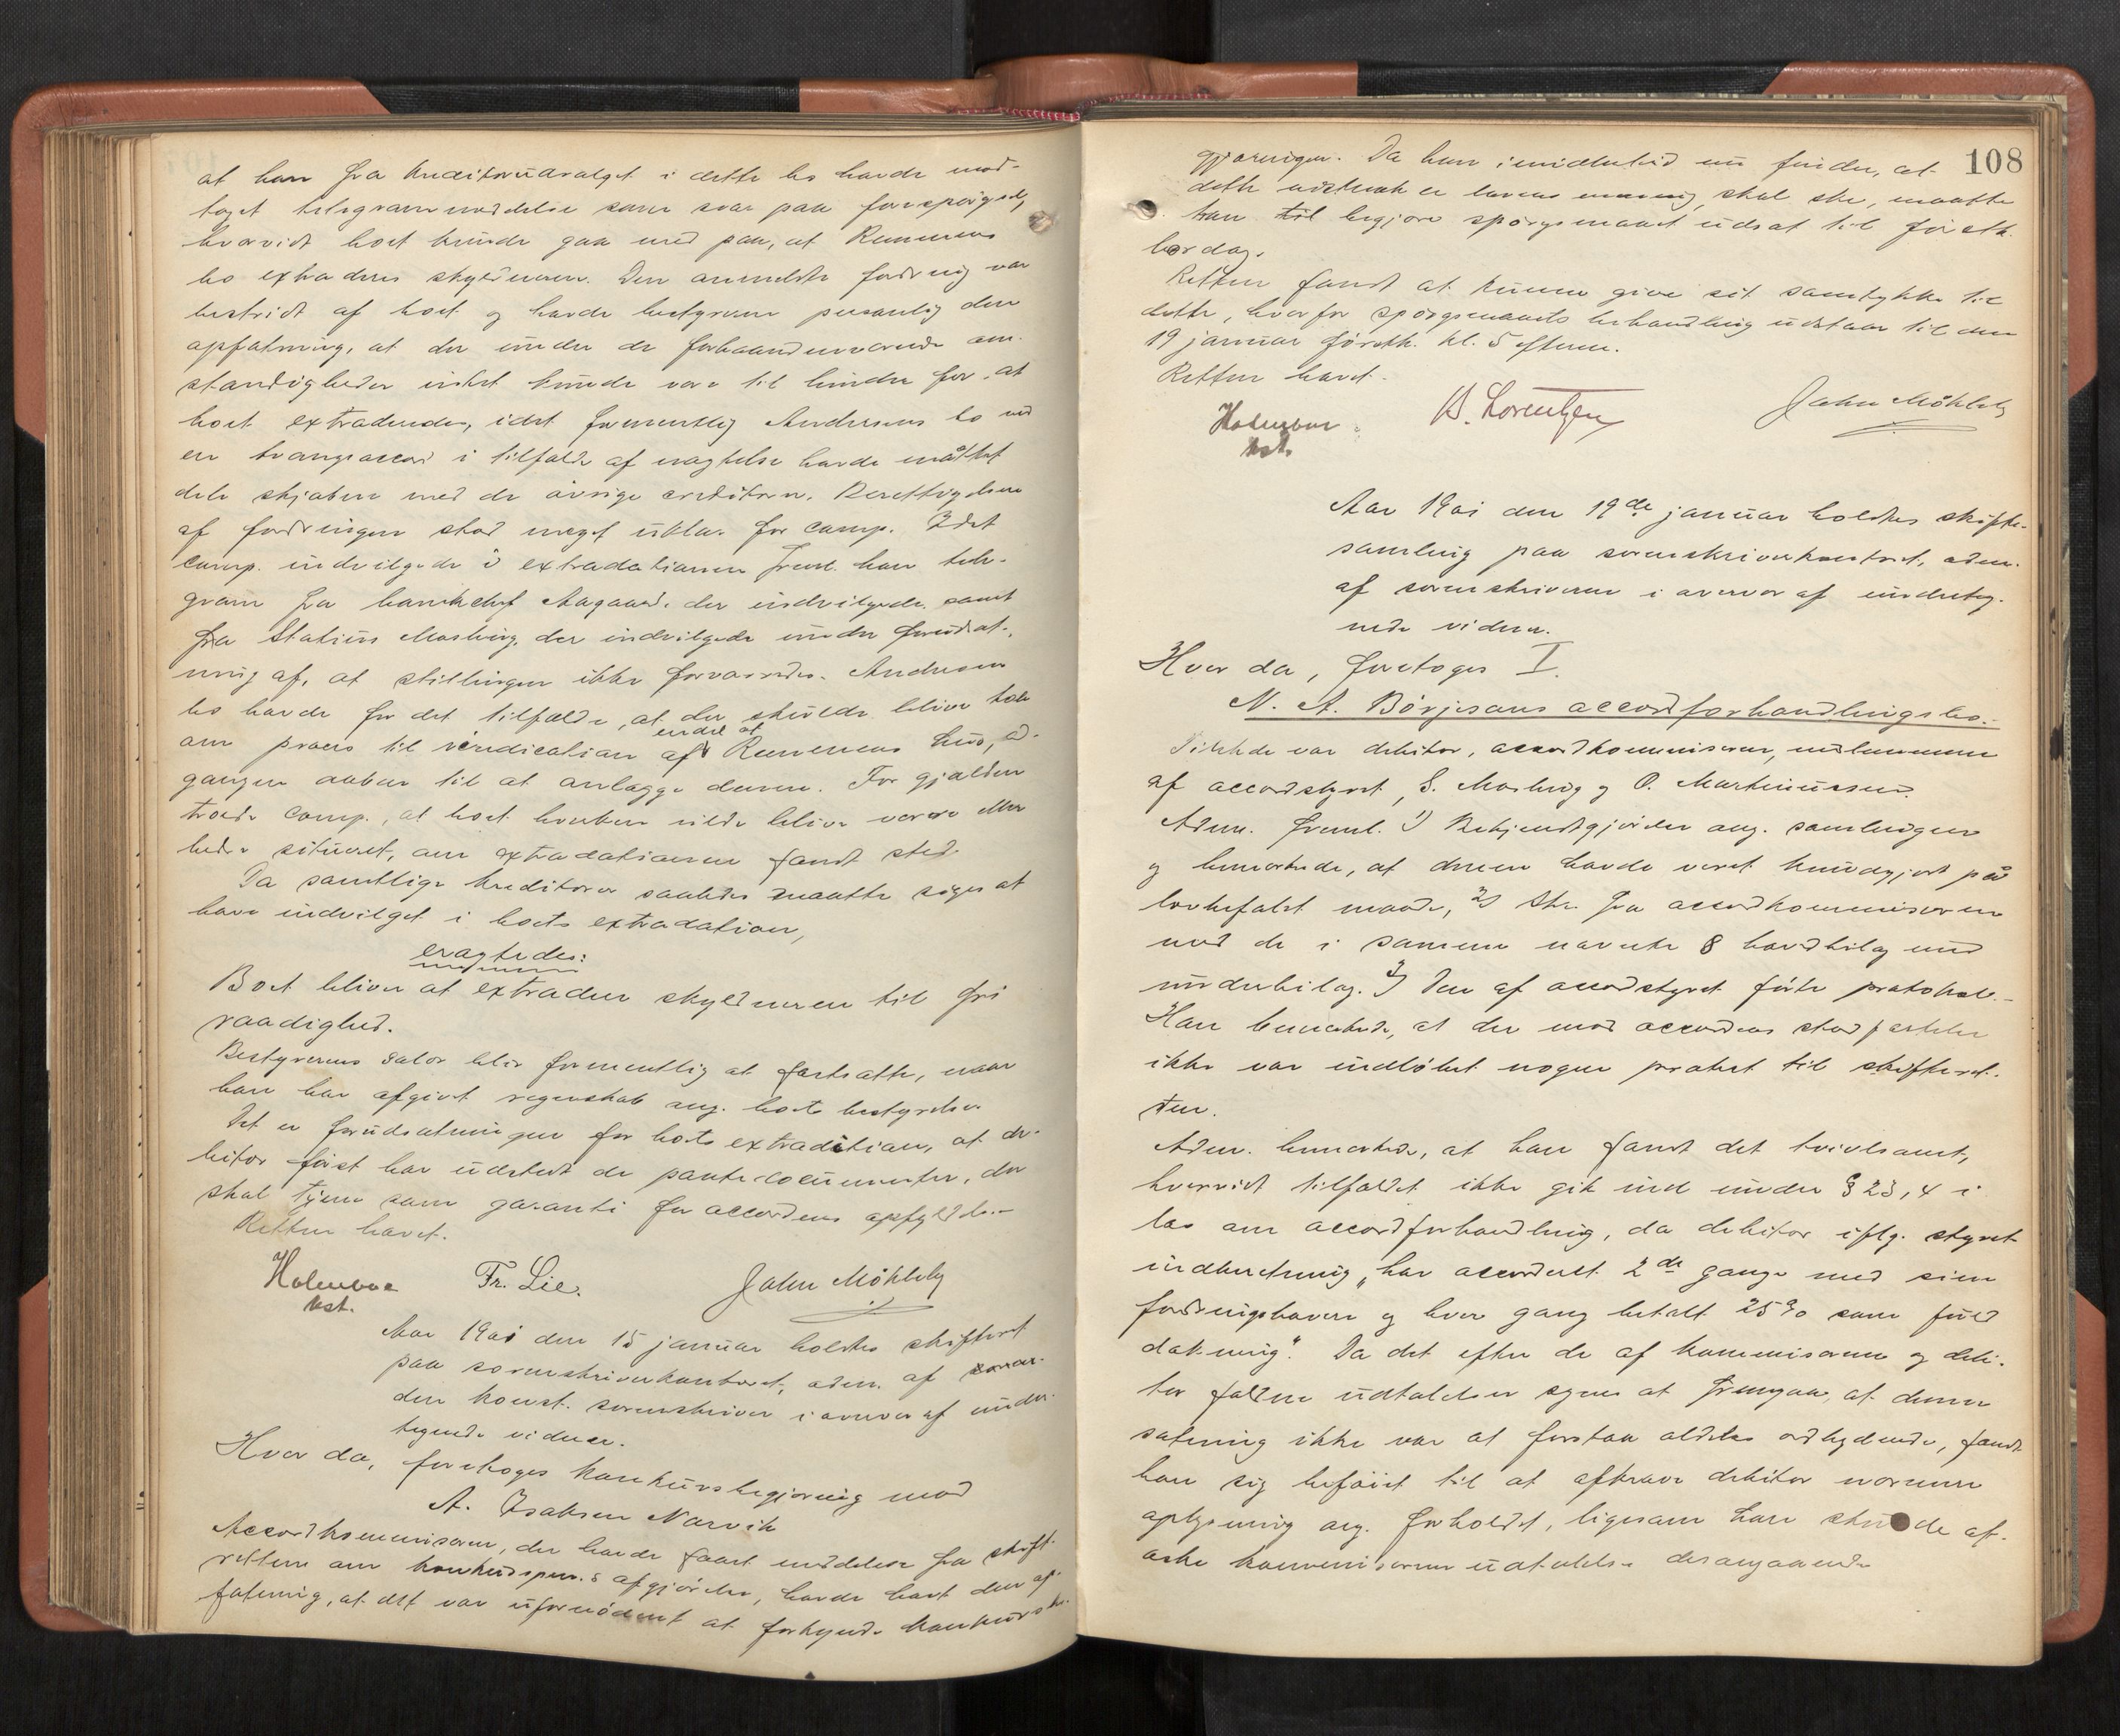 at han fra kreditorudvalget i dette bo havde mod-
taget telegrammeddelelse som svar paa forespørgsel,
hvorvidt boet kunde gaa med paa, at Rummens
bo extraderes skyldneren. Den anmeldte fordring var
bestridt af boet og havde bestyreren personlig den
opfatning, at der under de forhaandenværende om-
stændigheder intet kunde være til hinder for, at
boet extraderedes, idet formentlig Andersens bo ved
en tvangsaccord i tilfælde af vægtelse havde måttet
dele skjæbne med de øvrige creditorer. Berettigelsen
af fordringen stod meget uklar for comp. Idet
comp. indvilgede i extradationen freml. han tele-
gram fra bankchef Aagaard, der indvilgede, samt
fra Statius Mosling, der indvilgede under forudsæt-
ning af, at stillingen ikke forværredes. Andersens
bo havde for det tilfælde, at der skulde blive tale
om proces til vindication af Rummens hus, ad-
endel af
gangen aaben til at anlægge denne. For gjælden
troede comp., at boet hverken vilde blive værre eller
bedre situeret, om extradationen fandt sted.
Da samtlige kreditorer saaledes maatte siges at
have indvilget i boets extradation,
eragtedes:
Boet bliver at extradere skyldneren til fri
raadighed.
Bestyrerens salær blir formentlig at fastsætte, naar
han har afgivet regnskab ang. boets bestyrelse.
Det er forudsætningen for boets extradition, at de-
bitor først har udstedt de pantedocumenter, der
skal tjene som garanti for accordens opfyldelse.-
Retten hævet.
Holmboe Fr. Lie. John Møkleby
kst.
Aar 1901 den 15 januar holdtes skifteret
paa sorenskriverkontoret, adm. af
den konst. sorenskriver i overvær af under-
tegnede vidner.
Hvor da, foretoges konkursbegjæring mod
A. Isaksen Narvik
Accordkommisæren, der havde faaet meddelelse fra skift-
retten om afgjørelse, havde havt den op-
fatning, at det var ufornødent at forkynde konkursbe-
108
gjæringen. Da han imidlertid nu finder, at
dette udtrykk er lovens mening, skal ske, maatte
han til begjære spørgsmaalet udsat til førstk.
lørdag.
Retten fandt at kunne give sit samtykke til
dette, hvorfor spørgsmaalets behandling udstaar til den
19 januar førstk. kl. 5 efterm.
Retten hævet.
Holmboe B. Lorentzen John Møkleby
kst.
Aar 1901 den 19de januar holdtes skifte-
samling paa sorenskriverkontoret, adm.
af sorenskriveren i overvær af underteg-
nede vidner.
Hvor da, foretoges I.
N. A. Børjesons accordforhandlingsbo.-
Tilstede var debitor, accordkommisæren, medlemmene
af accordstyret, S. Mosling og O. Martinussen.
Adm. freml. 1) Bekjendtgjørelse ang. samlingen
og bemærkede, at denne havde været kundgjort på
lovbefalet maade, 2) Skr. fra accordkommisæren
med de i samme nævnte 8 hovedbilag med
underbilag. 3) Den af accordstyret førte protokol.-
Han bemærkede, at der mod accordens stadfæstelse
ikke var indløbet nogen protest til skifteret-
ten.
Adm. bemærkede, at han fandt det tvivlsomt,
hvorvidt tilfældet ikke gik ind under § 23, 4 i
lov om accordforhandling, da debitor iflg. styrets
indberetning „har accorderet 2de gange med sine
fordringshavere og hver gang betalt 25% som fuld
dækning“. Da det efter de af kommisæren og debi-
tor faldne udtalelser synes at fremgaa, at denne
sætning ikke var at forstaa aldeles ordlydende, fandt
han sig beføiet til at afkræve debitor nærmere
oplysning ang. forholdet, ligesom han skulde af-
æske kommisæren udtalelse desangaaende